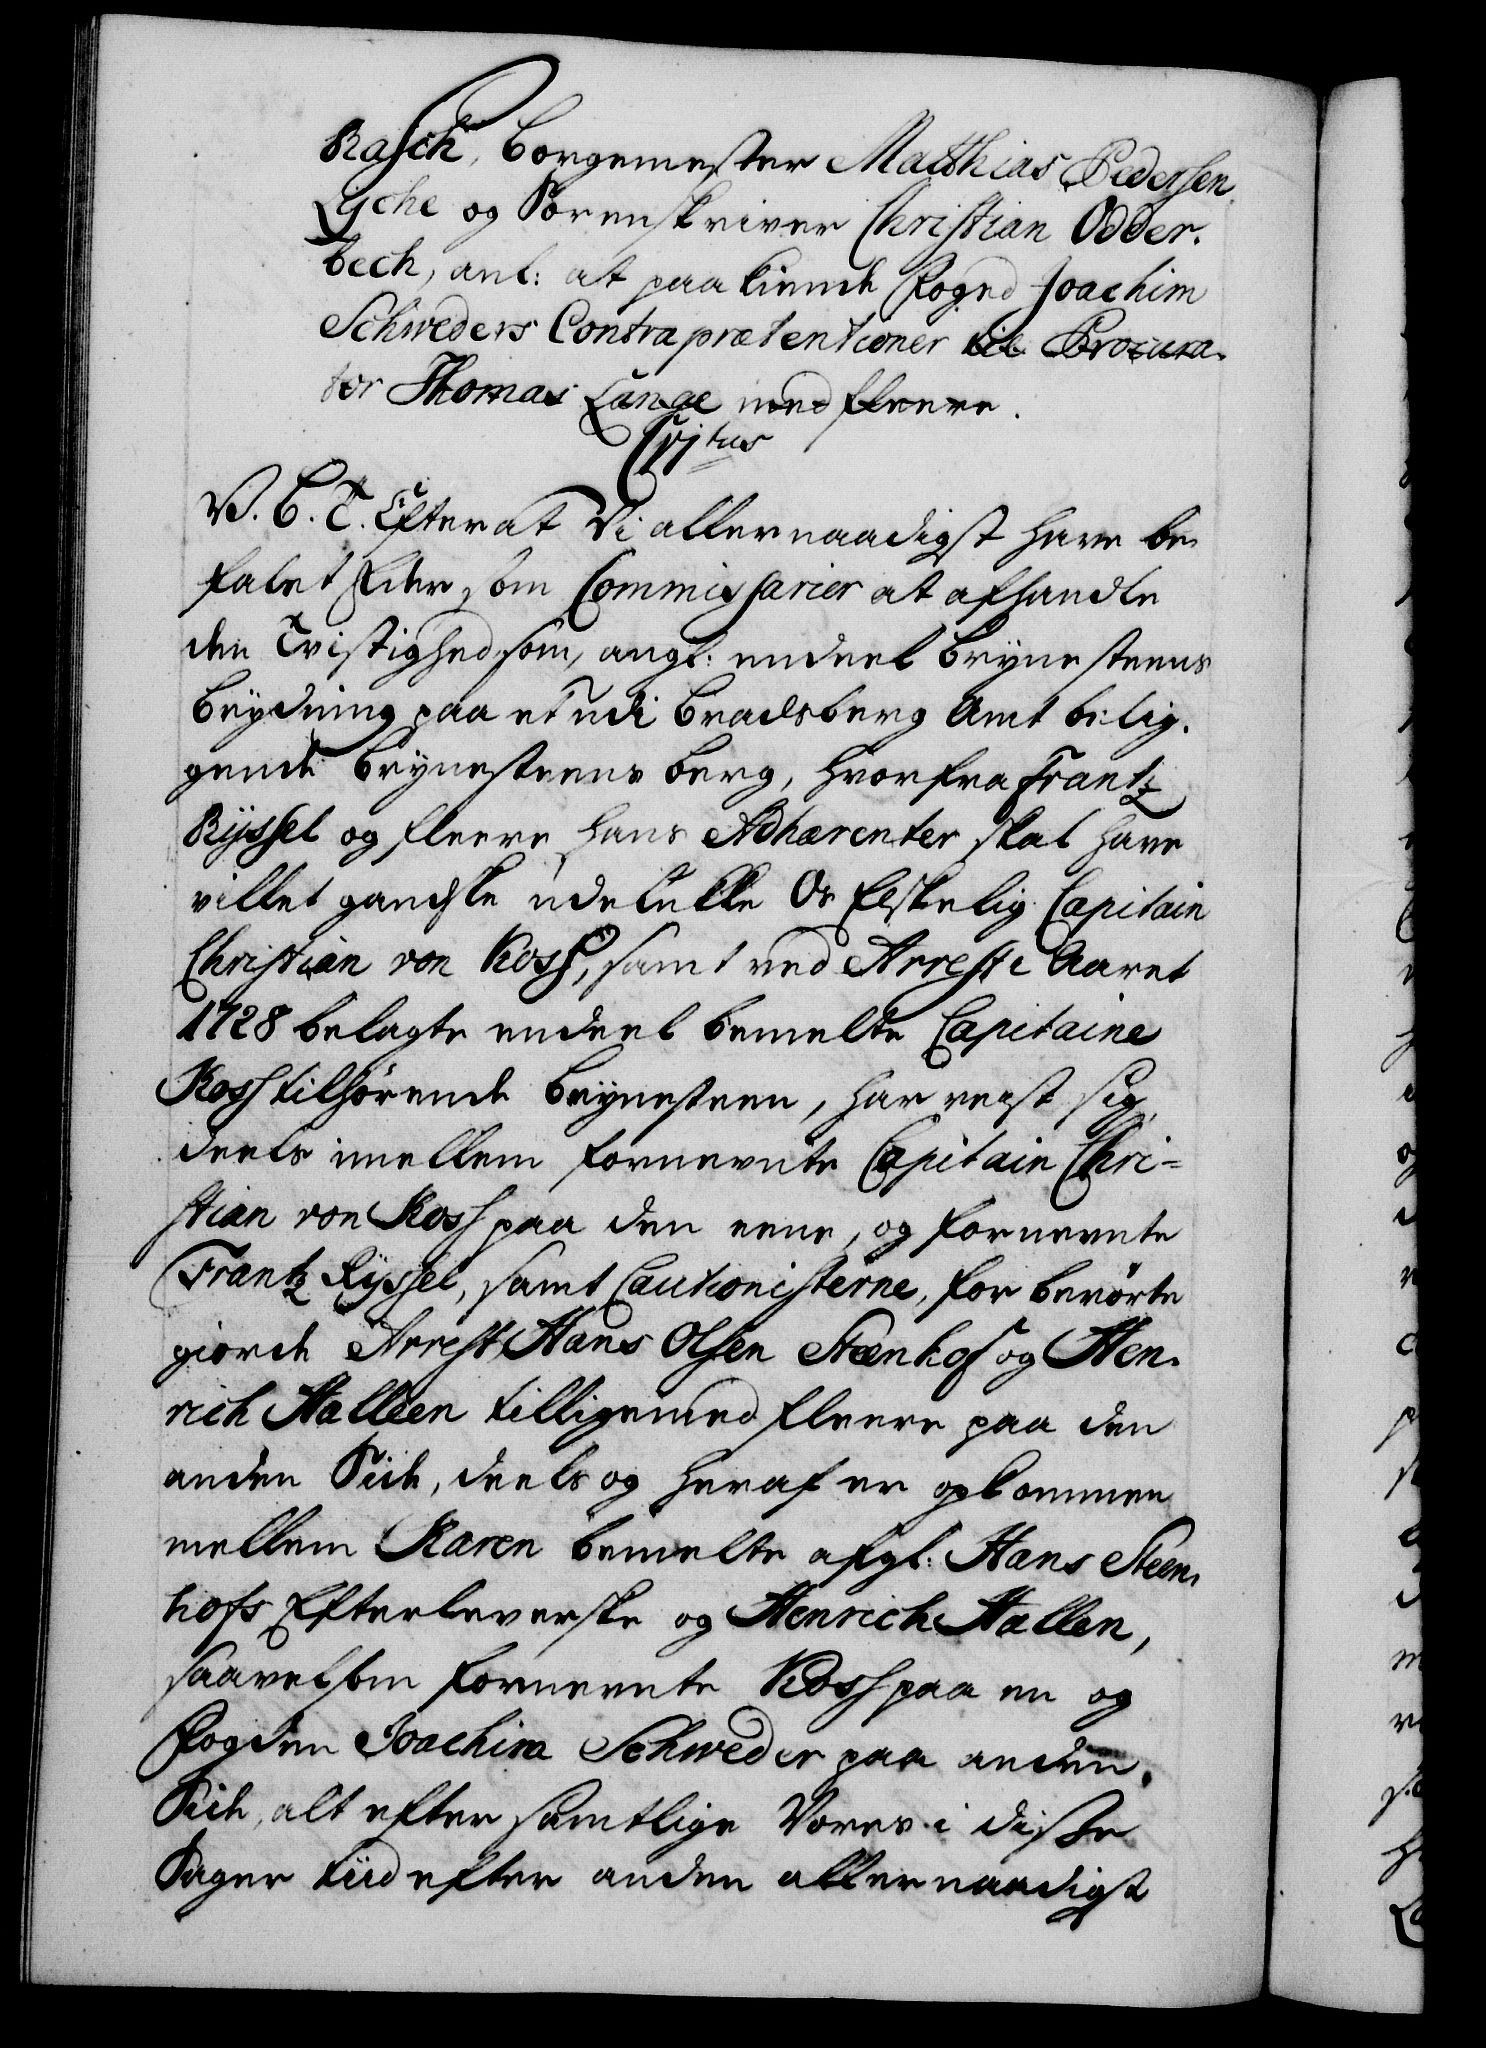 Rasch, Borgemester Matthias Pedersen
Lÿche og Sorenskriver Christian Odder-
bech, anl: at paakiende Foged Joachim
Schweders Contraprætentioner til Procura-
tor Thomas Lange med fleere.
V. C. T. Efter at Vi allernaadigst have be-
falet Eder som Commissarier at afhandle
den Tvistighed som, angl: endeel Brÿnesteens
Brÿdning paa et udi Bradsberg Amt belig-
gende Brÿnesteens Berg, hvorfra Frantz
Rÿssel og fleere hans Adhærenter skal have
villet gandske udelukke Os Elskelig Capitain
Christian von Koss, samt ved Arrest i Aaret
1728 belagte endeel bemelte Capitaine
Koss tilhørende Brÿnesteen, har reist sig,
deels imellem fornevnte Capitain Chri-
stian von Koss paa den eene, og fornevnte
Frantz Rÿssel, samt Cautionisterne, for berørte
giorde Arrest, Hans Olsen Steenhof og Hen-
rich Halleen tilligemed fleere paa den
anden Side, deels og heraf er opkommen
mellem Karen bemelte afgl: Hans Steen-
hofs Efterleverske og Henrich Hallen,
saavelsom fornevnte Koss paa en og
Fogden Joachim Schweder paa anden
Side, alt efter samtlige Vores i disse
Sager tiid efter anden allernaadigst